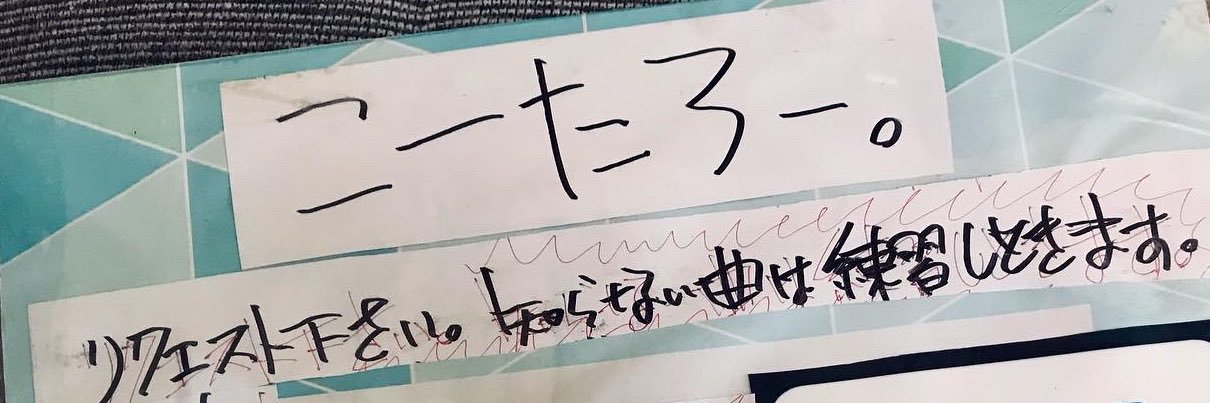 こーたろー。
リクエスト下さい。知らない曲は練習しときます。